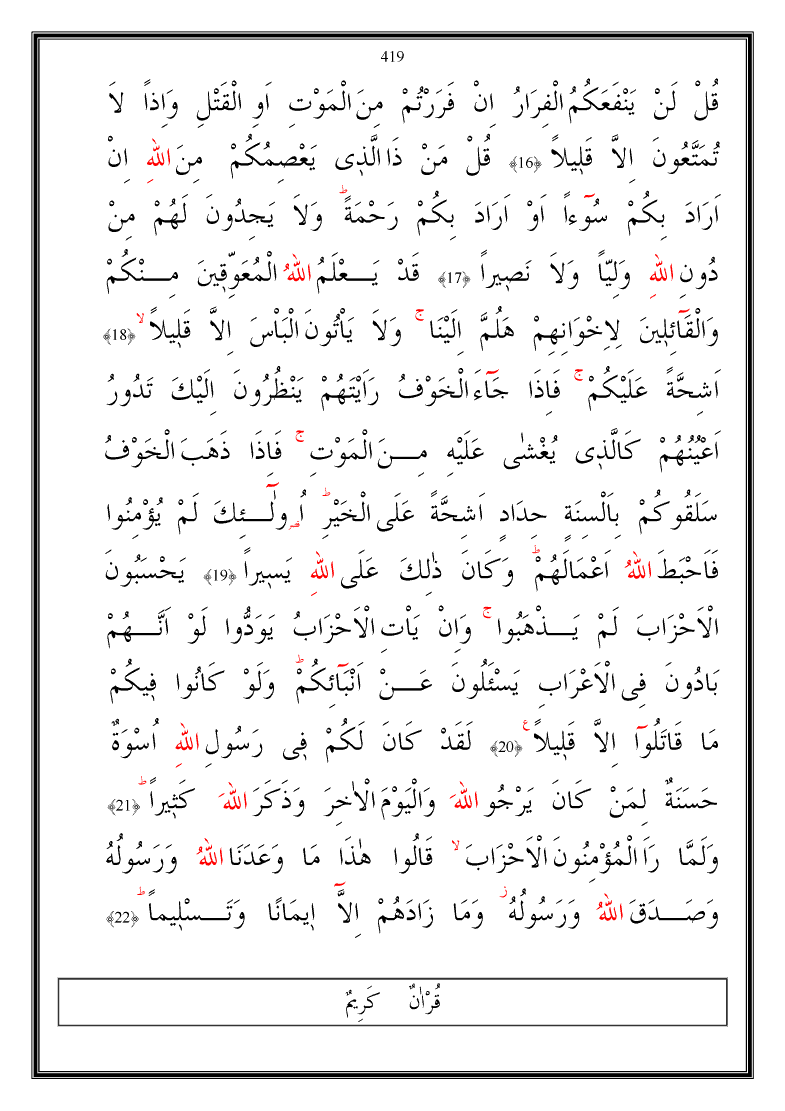 419
قُلْ لَنْ يَنْفَعَكُمُ الْفِرَارُ اِنْ فَرَرْتُمْ مِنَ الْمَوْتِ اَوِ الْقَتْلِ وَاِذاً لاَ
تُمَتَّعُونَ اِلاَّ قَلٖيلاً ﴿16﴾ قُلْ مَنْ ذَا الَّذٖى يَعْصِمُكُمْ مِنَ اللهِ اِنْ
اَرَادَ بِكُمْ سُوٓءاً اَوْ اَرَادَ بِكُمْ رَحْمَةًؕ وَلاَ يَجِدُونَ لَهُمْ مِنْ
دُونِ اللهِ وَلِيّاً وَلاَ نَصٖيراً ﴿17﴾ قَدْ يَـــعْلَمُ اللهُ الْمُعَوِّقٖينَ مِـــنْكُمْ
وَالْقَٓائِلٖينَ لِاِخْوَانِهِمْ هَلُمَّ اِلَيْنَاۚ وَلاَ يَاْتُونَ الْبَاْسَ اِلاَّ قَلٖيلاًۙ ﴿18﴾
اَشِحَّةً عَلَيْكُمْۚ فَاِذَا جَٓاءَ الْخَوْفُ رَاَيْتَهُمْ يَنْظُرُونَ اِلَيْكَ تَدُورُ
اَعْيُنُهُمْ كَالَّذٖى يُغْشٰى عَلَيْهِ مِـــنَ الْمَوْتِۚ فَاِذَا ذَهَبَ الْخَوْفُ
سَلَقُوكُمْ بِاَلْسِنَةٍ حِدَادٍ اَشِحَّةً عَلَى الْخَيْرِؕ اُو۬لٰٓـــئِكَ لَمْ يُؤْمِنُوا
فَاَحْبَطَ اللهُ اَعْمَالَهُمْؕ وَكَانَ ذٰلِكَ عَلَى اللهِ يَسٖيراً ﴿19﴾ يَحْسَبُونَ
الْاَحْزَابَ لَمْ يَـــذْهَبُواۚ وَاِنْ يَاْتِ الْاَحْزَابُ يَوَدُّوا لَوْ اَنَّـــهُمْ
بَادُونَ فِى الْاَعْرَابِ يَسْئَلُونَ عَـــنْ اَنْبَٓائِكُمْؕ وَلَوْ كَانُوا فٖيكُمْ
مَا قَاتَلُوٓا اِلاَّ قَلٖيلاًࣖ ﴿20﴾ لَقَدْ كَانَ لَكُمْ فٖى رَسُولِ اللهِ اُسْوَةٌ
حَسَنَةٌ لِمَنْ كَانَ يَرْجُو اللهَ وَالْيَوْمَ الْاٰخِرَ وَذَكَرَ اللهَ كَثٖيراًؕ ﴿21﴾
وَلَمَّا رَاَ الْمُؤْمِنُونَ الْاَحْزَابَۙ قَالُوا هٰذَا مَا وَعَدَنَا اللهُ وَرَسُولُهُ
وَصَـــدَقَ اللهُ وَرَسُولُهُؗ وَمَا زَادَهُمْ اِلآَّ اٖيمَانًا وَتَـــسْلٖيماًؕ ﴿22﴾
قُرْاٰنٌ كَرِيمٌ